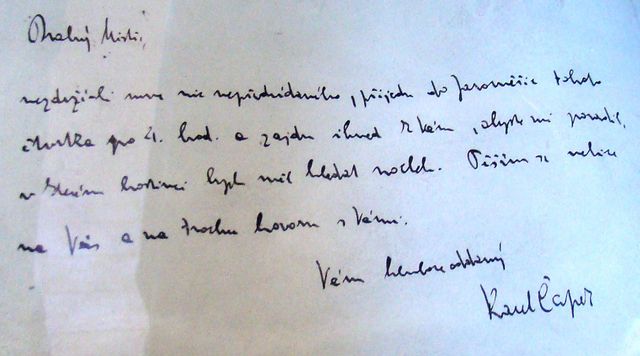 Drahý Mistře,
nezdrží-li mne nic nepředvídaného, přijedu do Jaroměřic tohoto
čtvrtka po 4. hod. a zajdu ihned k Vám, abyste mi poradil,
v kterém hostinci bych měl hledat nocleh. Těším se velice
na Vás a na trochu hovoru s Vámi.
Vám hluboce oddaný
Karel Čapek